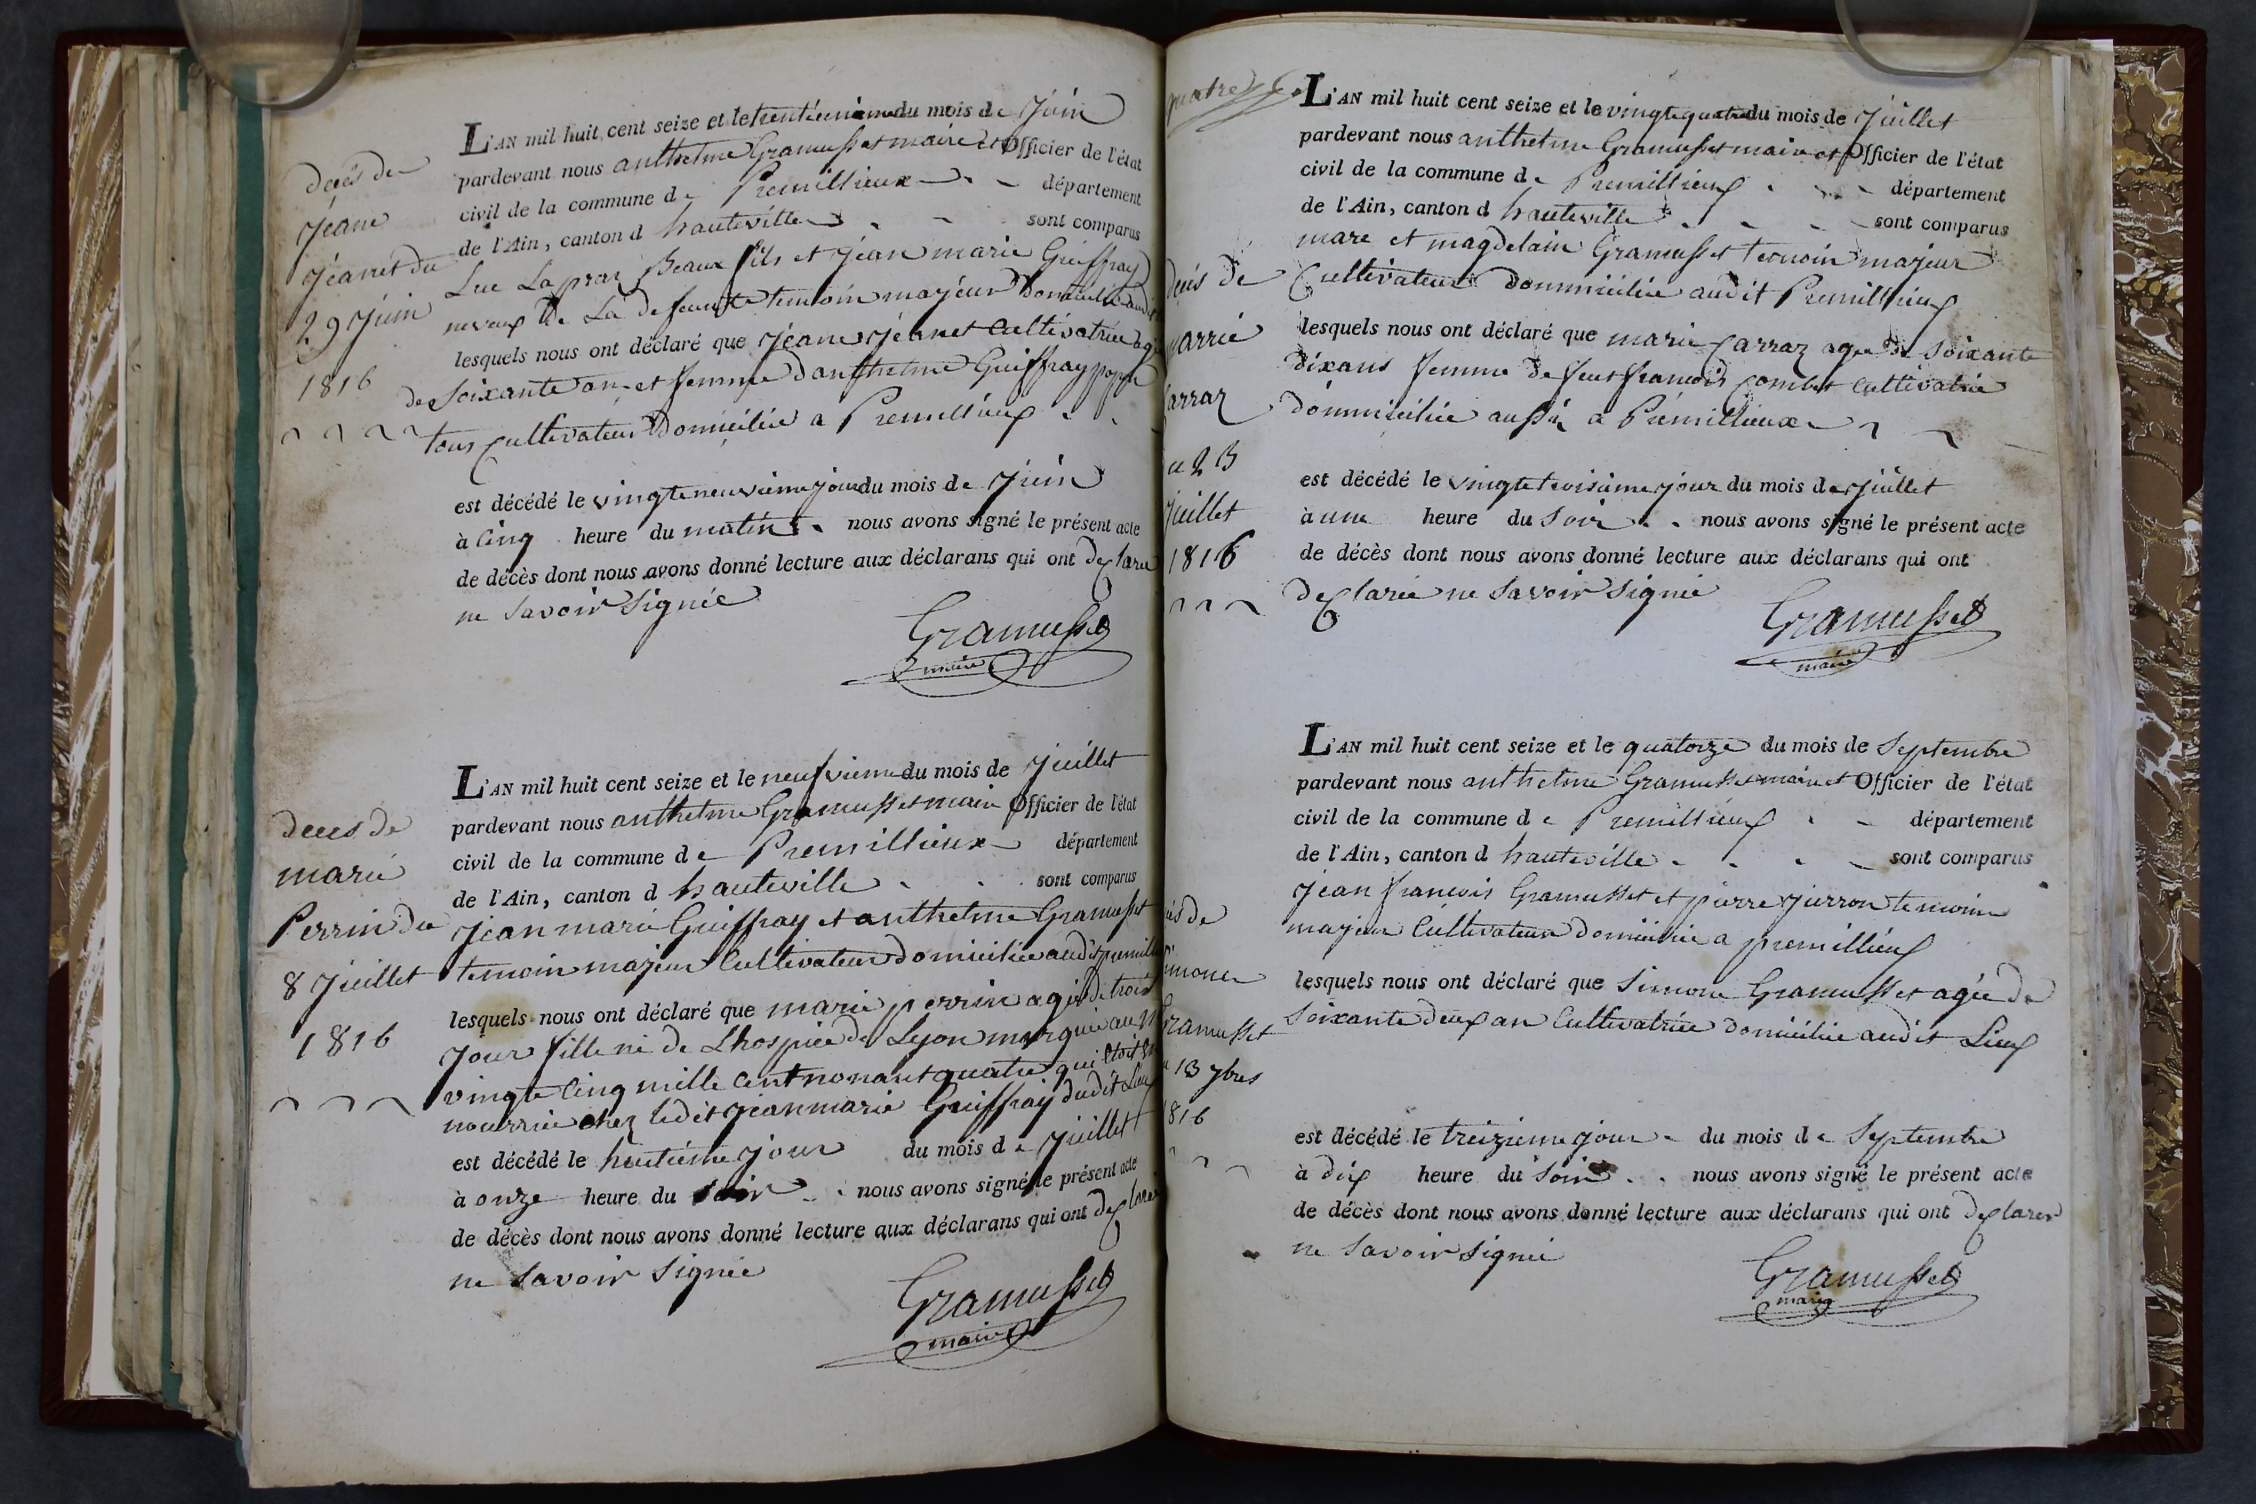 décès de
Jeane
Jeanet du
29 Juin
1816
L'AN mil huit cent seize et le trentiemme du mois de Juin
pardevant nous anthelme Gramusset maire et Officier de l'état
civil de la commune de Premillieux département
de l'Ain, canton d hauteville sont comparus
Luc Lapraz Beaux fils et Jean marie Guiffray
neveux de La defeunte temoin majeur Domicilié audit
lesquels nous ont déclaré que Jeane Jeanet Cultivatrice agé
de Soixante an et femme d'anthelme Guiffray
tous Cultivateur Domicilié a Premillieux
est décédé le vingt neuvieme jour du mois de Juin
à Cinq heure du matin nous avons signé le présent acte
de décès dont nous avons donné lecture aux déclarans qui ont declaré
ne Savoir Signée
Gramusset
maire
deces de
marie
Perrin du
8 Juillet
1816
L'AN mil huit cent seize et le neufvieme du mois de Juillet
pardevant nous anthelme Gramusset maire Officier de l'état
civil de la commune de Premillieux département
de l'Ain, canton d hauteville sont comparus
Jean marie Guiffray et anthelme Gramusset
temoin majeur Cultivateur domiciliée audit
lesquels nous ont déclaré que marie perrin agée de trois
Jour fille né de Lhospice de Lyon marquée au
vingt Cinq mille Cent nonant quatre qui etoit
nourrie chez ledit Jean marie Guiffray dudit Lieux
est décédé le huitieme jour du mois de Juillet
à onze heure du soir nous avons signé le présent acte
de décès dont nous avons donné lecture aux déclarans qui ont declaré
ne Savoir Signée
Gramusset
maire
quatre
decés de
marrie
Carraz
23
Juillet
1816
L'AN mil huit cent seize et le vingt quatre du mois de Juillet
pardevant nous anthelme Gramusset maire et Officier de l'état
civil de la commune de Premillieux département
de l'Ain, canton d hauteville sont comparus
marc et magdelain Gramusset temoin majeur
Cultivateur dommiciliée audit Premillieux
lesquels nous ont déclaré que marie Carraz agée de Soixante
dix ans femme de feut francois Combet Cultivatrice
domiciliée aussi a Prémillieux
est décédé le vingt troisieme jour du mois de Juillet
à une heure du Soir nous avons signé le présent acte
de décès dont nous avons donné lecture aux déclarans qui ont
declarée ne Savoir Signée
Gramusset
maire
Simone
Gramusset
13 7bres
1816
L'AN mil huit cent seize et le quatorze du mois de Septembre
pardevant nous anthelme Gramusset maire et Officier de l'état
civil de la commune de Premillieux département
de l'Ain, canton d hauteville sont comparus
Jean francois Gramusset et pierre temoin
majeur Cultivateur domicilié a premillieux
lesquels nous ont déclaré que Simone Gramusset agée de
Soixante deux an Cultivatrice domiciliée audit Lieux
est décédé le treizieme jour du mois de Septembre
à dix heure du Soir nous avons signé le présent acte
de décès dont nous avons donné lecture aux déclarans qui ont declarer
ne Savoir Signée
Gramusset
maire